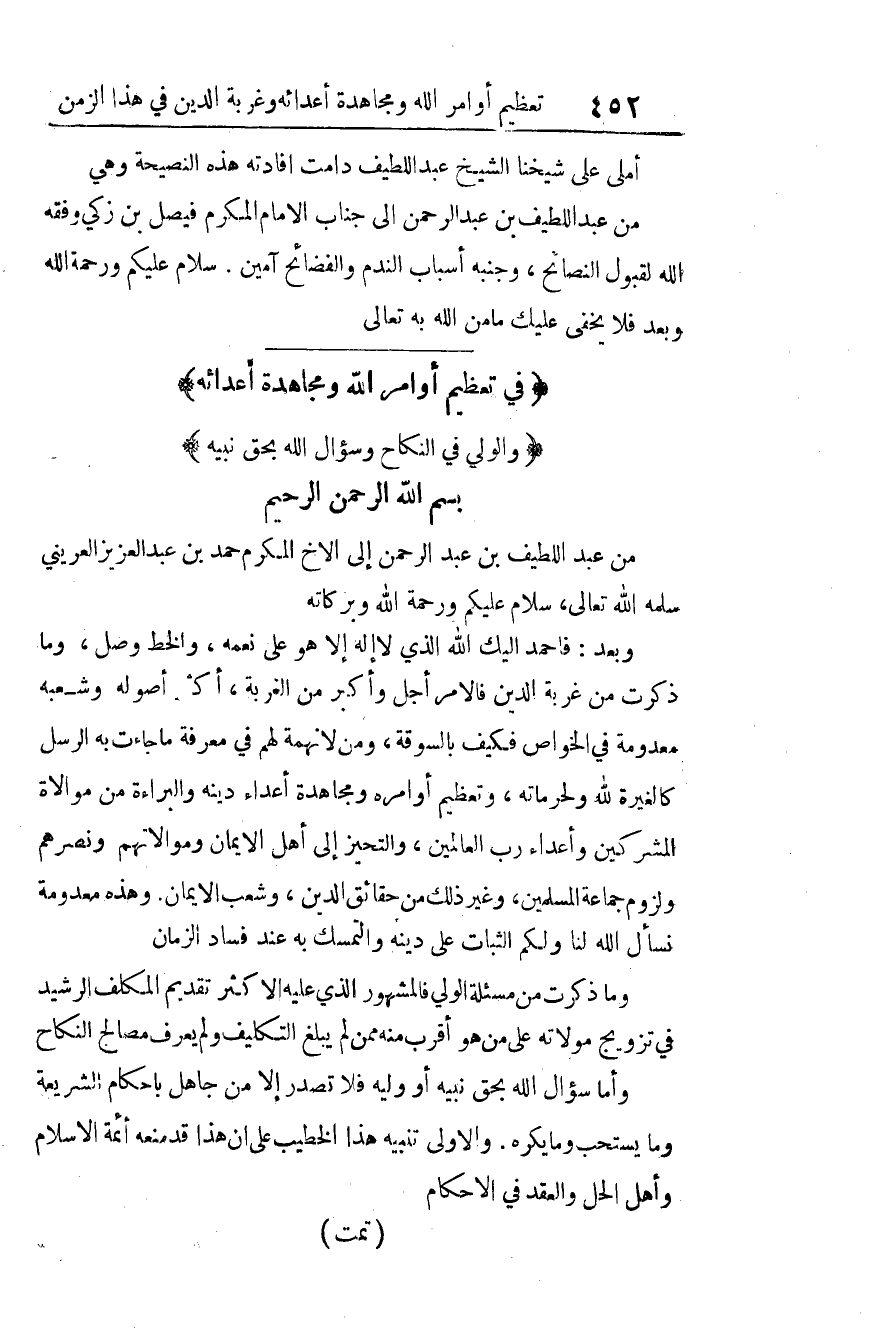 ٤٥٢ تعظيم أوامر الله ومجاهدة أعدائه وغربة الدين في هذا الزمن
أملى على شيخنا الشيخ عبداللطيف دامت افادته هذه النصيحة وهي
من عبداللطيف بن عبدالرحمن الى جناب الامام المكرم فيصل بن زكي وفقه
الله لقبول النصائح ، وجنبه أسباب الندم والفضائح آمين . سلام عليكم ورحمة الله
وبعد فلا يخفى عليك مامن الله به تعالى
﴿ في تعظيم أوامر الله ومجاهدة أعدائه﴾
﴿ والولي في النكاح وسؤال الله بحق نبيه ﴾
بسم الله الرحمن الرحيم
من عبد اللطيف بن عبد الرحمن إلى الاخ المكرم حمد بن عبدالعزيز العريني
سلمه الله تعالى، سلام عليكم ورحمة الله وبركاته
وبعد : فاحمد اليك الله الذي لا إله إلا هو على نعمه ، والخط وصل ، وما
ذكرت من غربة الدين فالامر أجل وأكبر من الغربة ، أصوله وشعبه
معدومة في الخواص فكيف بالسوقة ، ومن لانهمة لهم في معرفة ماجاءت به الرسل
كالغيرة لله ولحرماته ، وتعظيم أوامره ومجاهدة أعداء دينه والبراءة من موالاة
المشركين وأعداء رب العالمين ، والتحيز إلى أهل الايمان وموالاتهم ونصرهم
ولزوم جماعة المسلمين، وغير ذلك من حقائق الدين ، وشعب الايمان. وهذه معدومة
نسأل الله لنا ولكم الثبات على دينه والتمسك به عند فساد الزمان
وما ذكرت من مسئلة الولي فالمشهور الذي عليه الاكثر تقديم المكلف الرشيد
في تزويج مولاته على من هو أقرب منه ممن لم يبلغ التكليف ولم يعرف مصالح النكاح
وأما سؤال الله بحق نبيه أو وليه فلا تصدر إلا من جاهل باحكام الشريعة
وما يستحب وما يكره . والاولى تنبيه هذا الخطيب على ان هذا قد منعه أئمة الاسلام
وأهل الحل والعقد في الاحكام
( تمت )